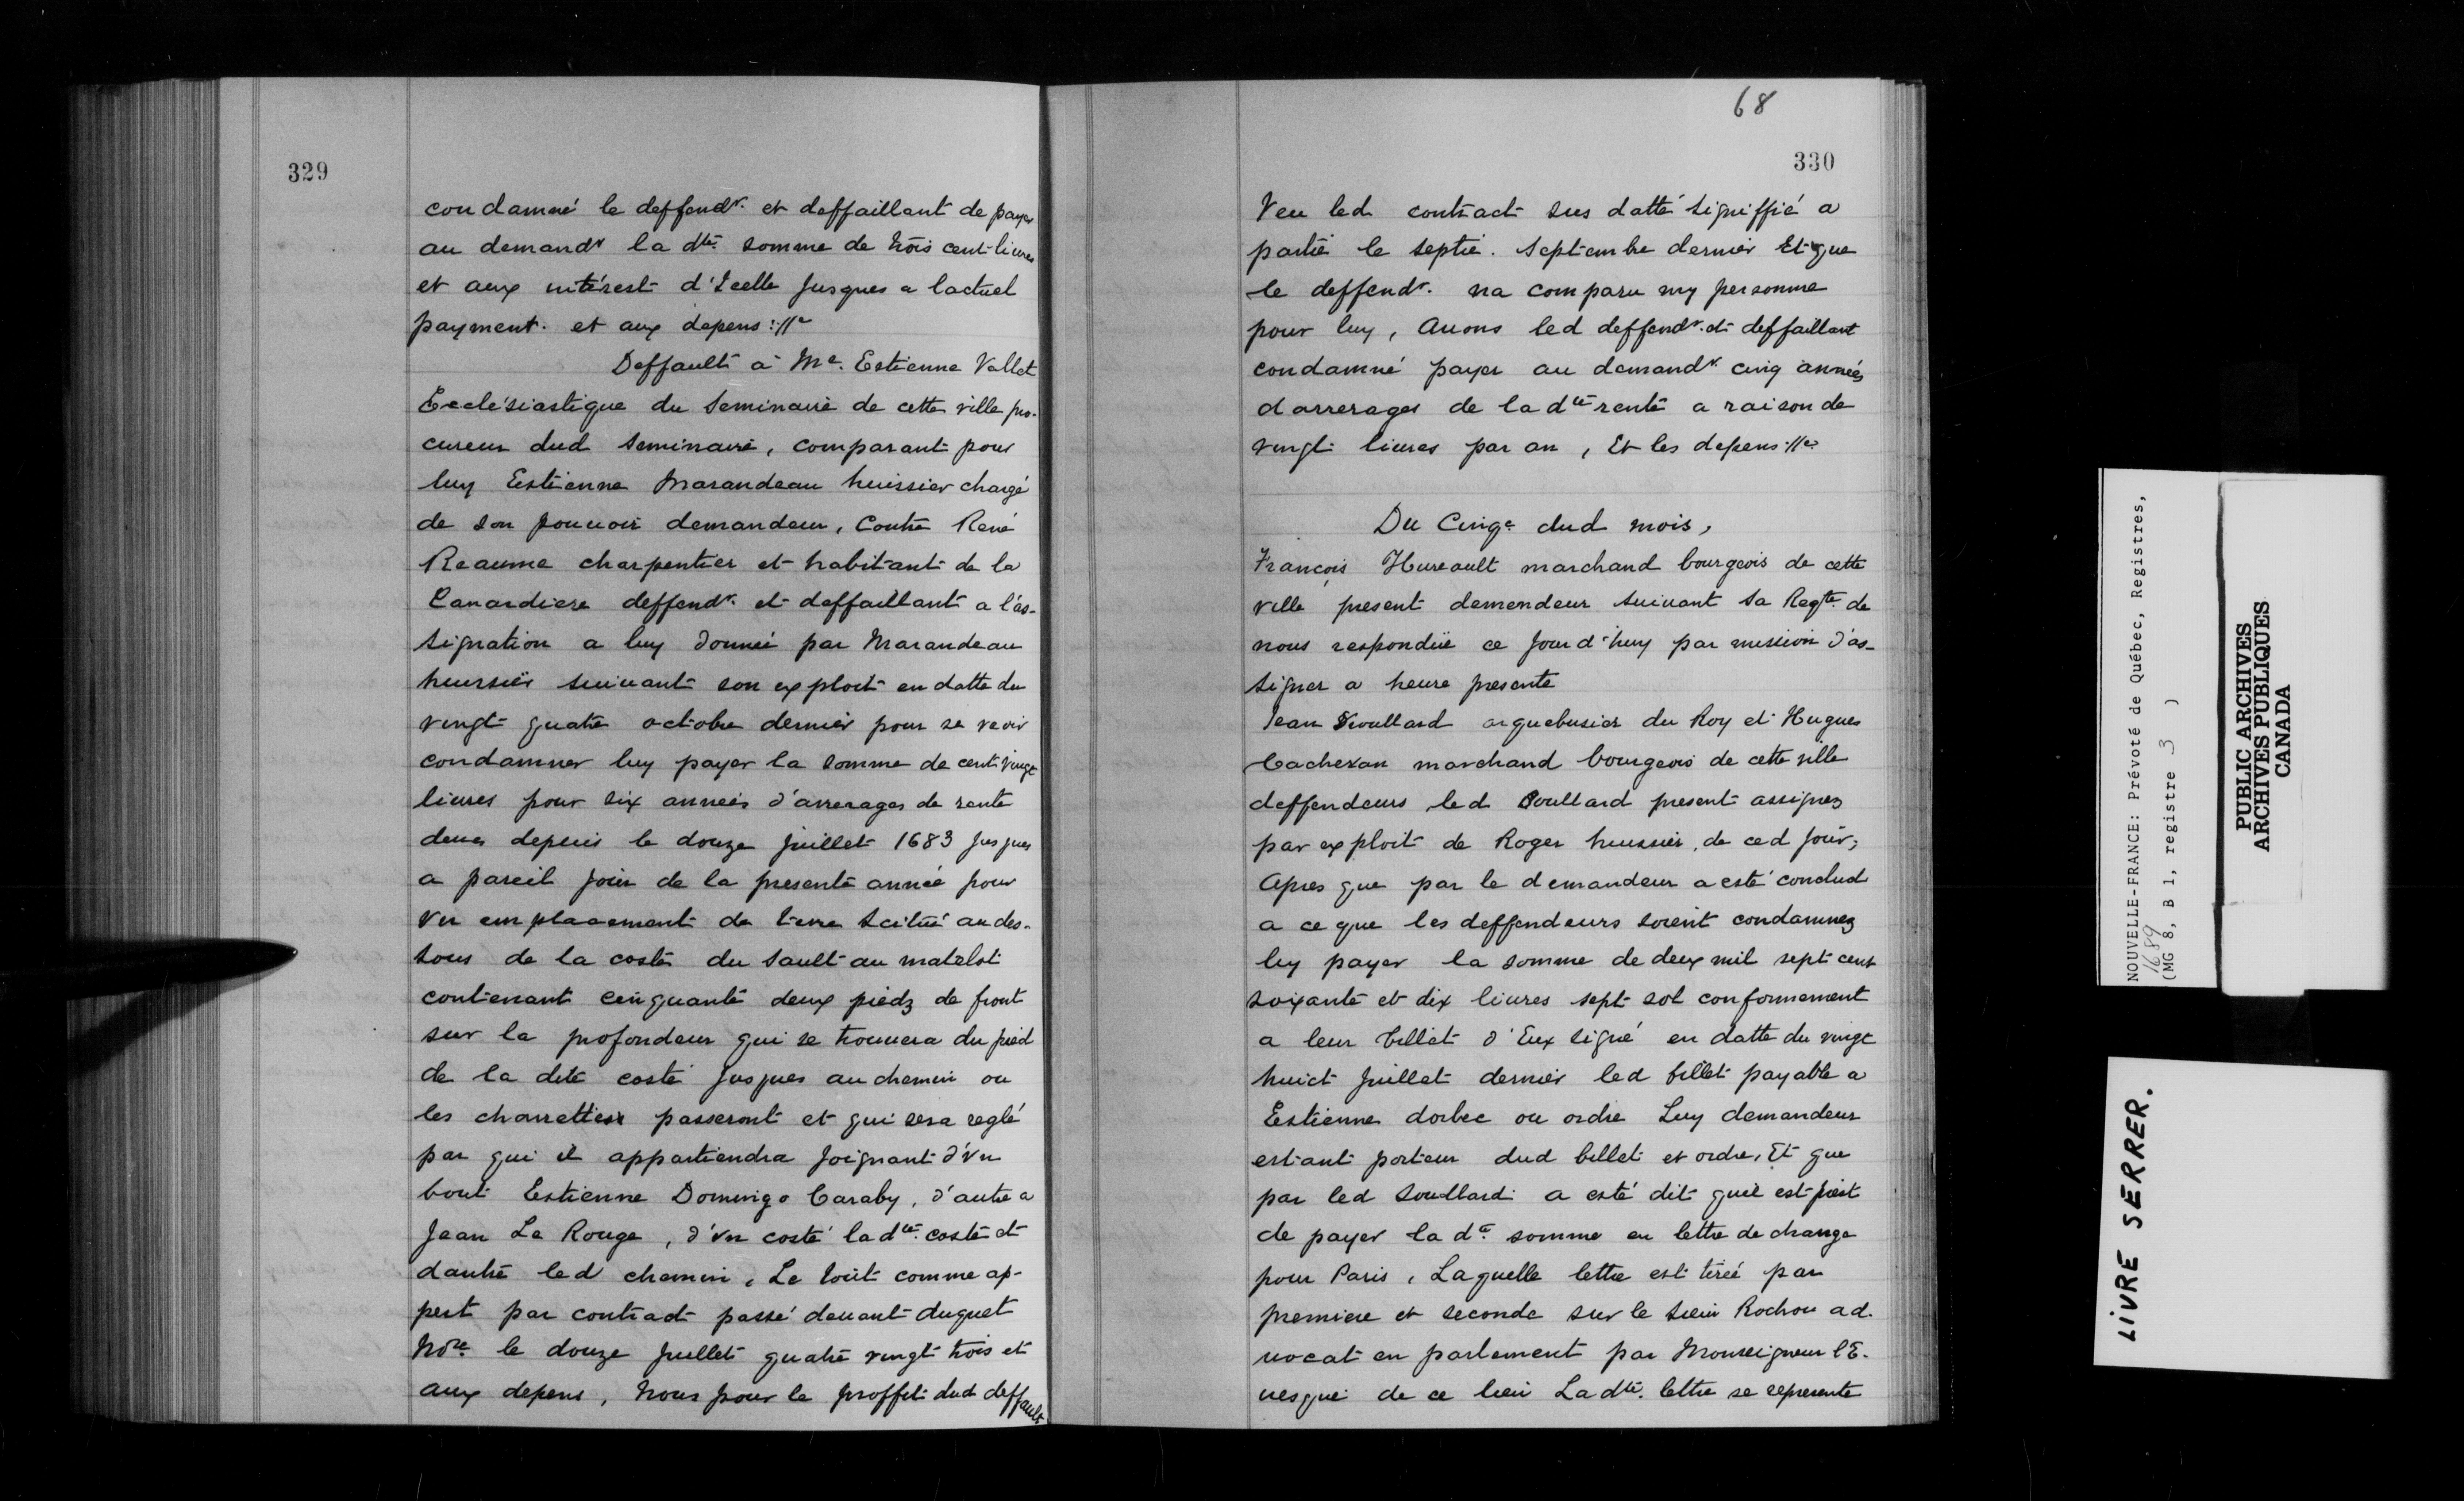 329
condamné le deffendr. et deffaillant de payer
au demandr la dte. somme de trois cent livres
et aux intérest d'Icelle Jusques a lactuel
payment. et aux depens ://
Deffault à Me. Estienne Vallet
Ecclésiastique du Seminaire de cette ville pro-
cureur dud Seminaire, comparant pour
luy Estienne Marandeau huissier chargé
de son pouuoir demandeur, Contre René
Reaume charpentier et habitant de la
Canardiere deffendr. et deffaillant a l'as-
signation a luy donnée par Marandeau
huissier suiuant son exploit en datte du
vingt quatre octobre dernier pour se veoir
condamner luy payer la somme de cent vingt
liures pour six années d'arrerages de rente
deues depuis le douze Juillet 1683 Jusques
a pareil Jour de la presente année pour
vn emplacement de terre scitué au des-
sous de la coste du Sault au matelot
contenant cinquante deux piedz de front
sur la profondeur qui se trouuera du pied
de la dite coste Jusques au chemin ou
les charrettes passeront et qui sera reglé
par qui il appartiendra Joignant d'vn
bout Estienne Domingo Caraby, d'autre a
Jean Le Rouge, d'vn costé la dte. coste et
dautre led chemin, Le tout comme ap-
pert par contract passé deuant duquet
Nore le douze Juillet quatre vingt trois et
aux depens, Nous pour le proffit dud deffault
68
330
Veu led contract sus datté signiffié a
partie le septie. Septembre dernier Et que
le deffendr. na comparu ny personne
pour luy, Auons led deffendr. et deffaillant
condamné payer au demandr. cinq années
darrerages de la dte rente a raison de
vingt liures par an, Et les depens ://
Du Cinqe dud mois,
François Hureault marchand bourgeois de cette
ville present demendeur suiuant sa Reqte. de
nous respondüe ce Jourd'huy par mission d'as-
signer a heure presente
Jean Soullard arquebusier du Roy et Hugues
Cacheran marchand bourgeois de cette ville
deffendeurs led Soullard present assignez
par exploit de Roger huissier, de ced Jour;
Apres que par le demandeur a esté conclud
a ce que les deffendeurs soient condamnez
luy payer la somme de deux mil sept cent
soixante et dix liures sept sol conformement
a leur billet d'Eux signé en datte du vingt
huict Juillet dernier led billet payable a
Estienne dorbec ou ordre Luy demandeur
estant porteur dud billet et ordre, Et que
par led Soullard a esté dit quil est prest
de payer la de. somme en lettre de change
pour Paris, Laquelle lettre est tirée par
premiere et seconde sur le sieur Rochon ad-
uocat en parlement par Monseigneur l'E-
uesque de ce lieu La dte. lettre se represente
NOUVELLE-FRANCE: Prévoté de Québec, Registres,
1689
(MG 8, B 1, registre 3 )
PUBLIC ARCHIVES
ARCHIVES PUBLIQUES
CANADA
LIVRE SERRER.